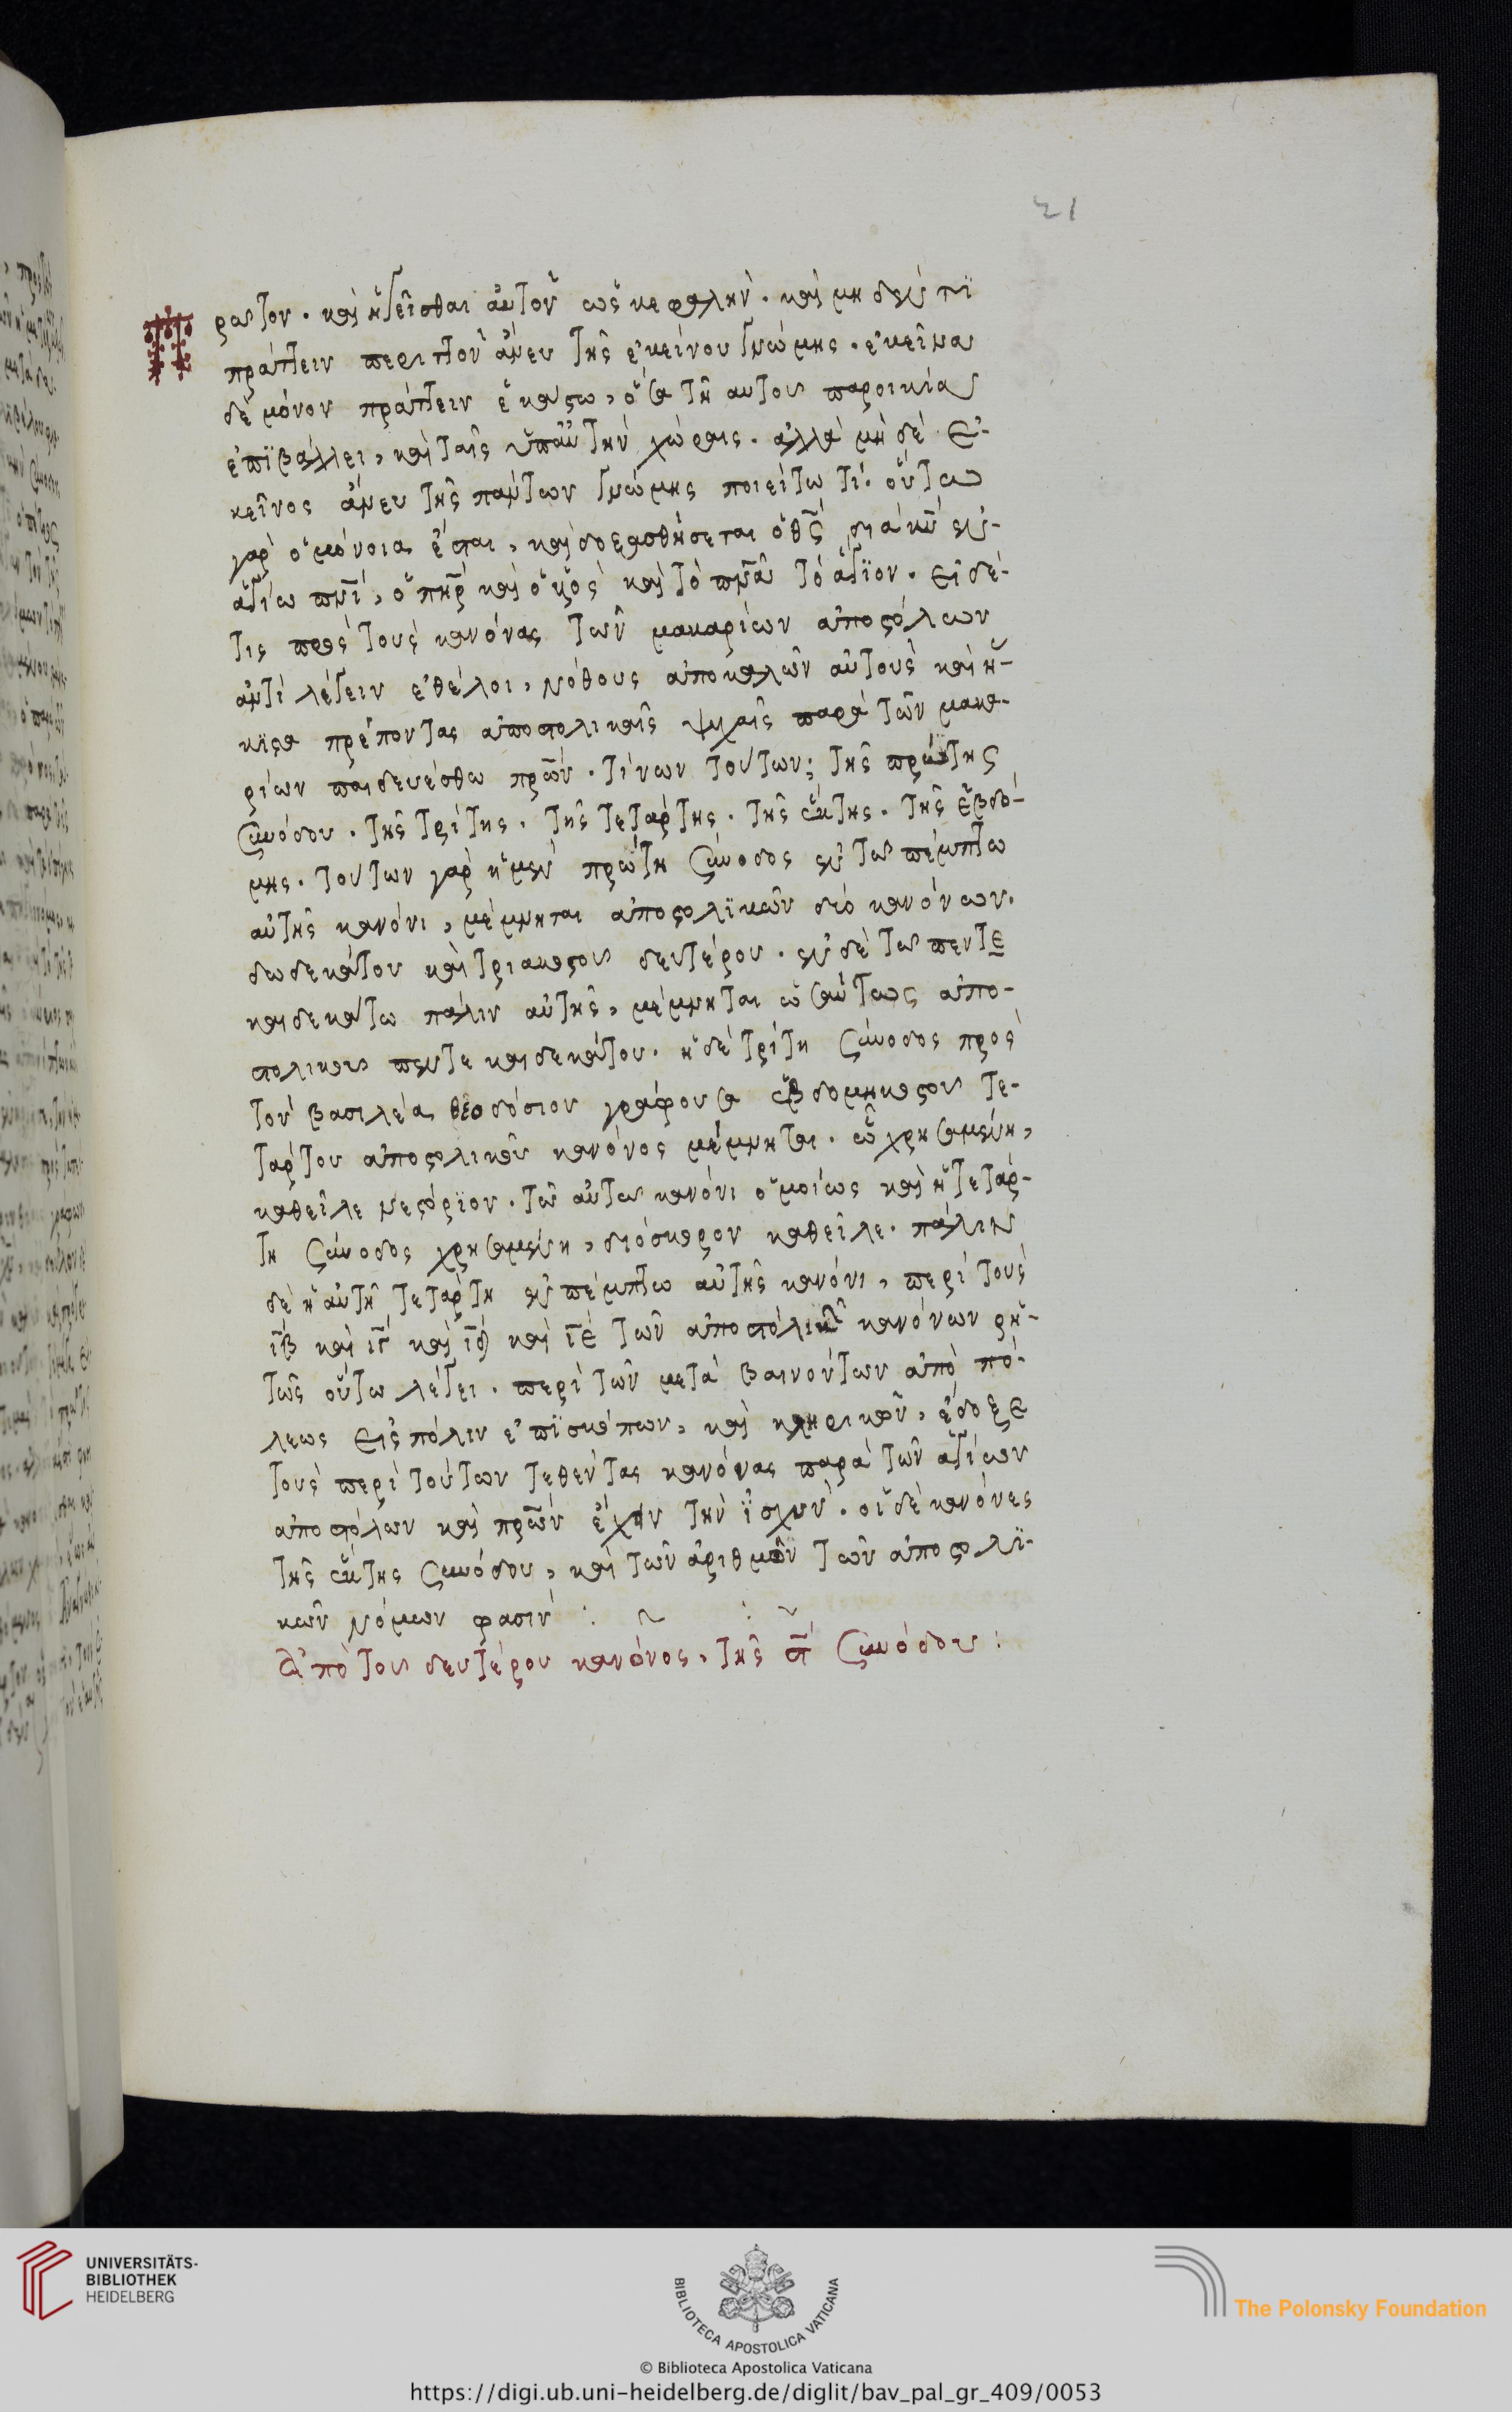 21
ρατον. καὶ ἡγεῖσθαι αὐτοῦ ὡς κεφαλήν. καὶ μηδέν τι
πράττειν περιττὸν ἄνευ τῆς ἐκείνου γνώμης. ἐκεῖνα
δὲ μόνον πράττειν ἕκαστω, ὅσα τῆ αυτοῦ παροικία
ἐπϊβάλλει, καὶ ταῖς ὑπαὐτὴν χώραις. ἀλλὰ μὴ δὲ ἐ-
κεῖνος ἄνευ τῆς πάντων γνώμης ποιείτω τί. οὕτω
γὰρ ὁμόνοια ἔσται, καὶ δοξασθήσεται ὁ θς̄ διὰ κῡ ἐν
ἁγίω πνῑ, ὁ πηρ̄ καὶ ὁ υς̄ καὶ τὸ πνᾱ τὸ ἅγϊον. εἰ δέ
τις πρὸς τοὺς κανόνας τῶν μακαρίων ἀποστόλων
ἀντιλέγειν ἐθέλοι, νόθους ἀποκαλῶν αὐτοὺς καὶ ἥ-
κϊστα πρέποντας ἀποστολικαῖς ψυχαῖς παρὰ τῶν μακα-
ρίων παιδευέσθω πρω̄ν. τίνων τούτων; τῆς πρώτης
συνόδου. τῆς τρίτης. τῆς τετάρτης. τῆς ἕκτης. τῆς ἑβδό-
μης. τούτων γὰρ ἡ μὲν πρώτη σύνοδος ἐν τῶ πέμπτω
αὐτῆς κανόνι, μέμνηται ἀποστολϊκῶν δύο κανόνων.
δωδεκάτου καὶ τριακοστοῦ δευτέρου. ἐν δὲ τῶ πεντε
καιδεκάτω πάλιν αὐτῆς, μέμνηται ὡσαύτως ἀπο-
στολικοῦ πεντεκαιδεκάτου. ἡ δὲ τρίτη σύνοδος πρὸς
τὸν βασιλέα θεοδόσιον γράφουσα ἑβδομηκοστοῦ τε-
τάρτου ἀποστολικοῦ κανόνος μέμνηται. ὧ χρησαμένη,
καθεῖλε νεστόρϊον. τῶ αὐτῶ κανόνι ὁμοίως καὶ ἡ τετάρ-
τη σύνοδος χρησαμένη, διόσκορον καθεῖλε. πάλιν
δὲ ἡ αὐτὴ τετάρτη ἐν πέμπτω αὐτῆς κανόνι, περὶ τοὺς
ιβ̄ καὶ ιγ̄ καὶ ιδ̄ καὶ ιε̄ τῶν ἀποστολικῶν κανόνων ρη-
τῶς οὕτω λέγει. περὶ τῶν μετα βαινόντων ἀπὸ πό-
λεως εἰς πόλιν ἐπϊσκόπων, καὶ κληρικῶν, ἔδοξε
τοὺς περὶ τούτων τεθέντας κανόνας παρὰ τῶν ἁγίων
ἀποστόλων καὶ πρω̄ν ἔχειν τὴν ἰσχύν. οἱ δὲ κανόνες
τῆς ἕκτης συνόδου, καὶ τῶν ἀριθμὸν τῶν ἀποστολϊ-
κῶν νόμων φασίν :
Ἀπὸ τοῦ δευτέρου κανόνος, τῆς ϛ̄ συνόδου :
UNIVERSITÄTS-
BIBLIOTHEK
HEIDELBERG
BIBLIOTECA APOSTOLICA VATICANA
The Polonsky Foundation
© Biblioteca Apostolica Vaticana
https://digi.ub.uni-heidelberg.de/diglit/bav_pal_gr_409/0053